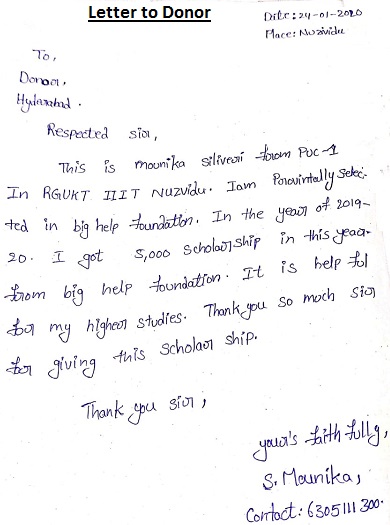 Letter to Donor
Date: 24-01-2020
Place: Nuzividu
To,
Donor,
Hyderabad.
Respected sir,
This is mounika siliveri from PUC-1
In RGUKT IIIT Nuzvidu. Iam Porovintally selec-
ted in big help foundation. In the year of 2019-
20. I got 5,000 scholarship in this year
from big help foundation. It is help ful
for my higher studies. Thank you so much sir
for giving this Scholar ship.
Thank you sir,
your's faith fully,
S. Mounika,
Contact: 6305111300.